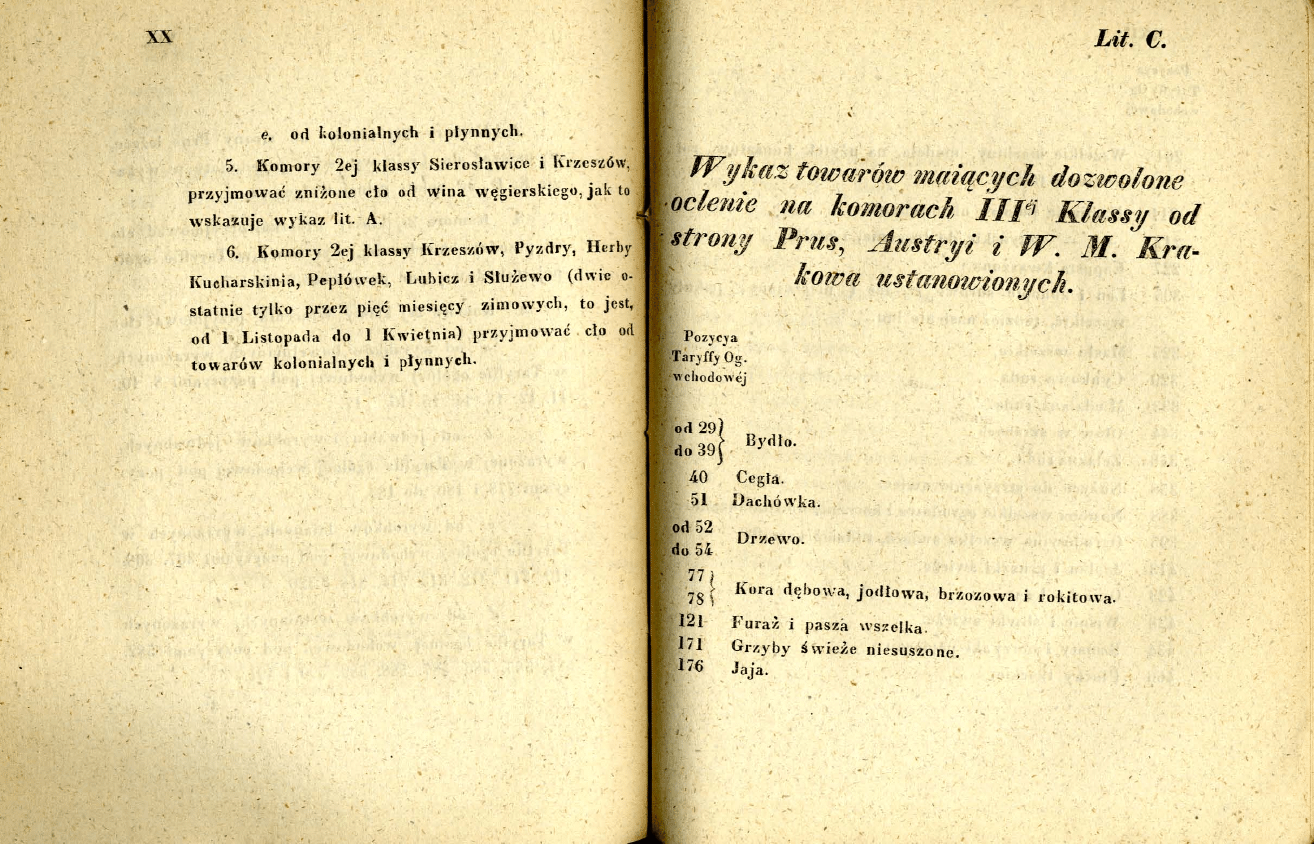 XX
e. od kolonialnych i płynnych.
5. Komory 2ej klassy Sierosławice i Krzeszów,
przyjmować zniżone cło od wina węgierskiego, jak to
wskazuje wykaz lit. A.
6. Komory 2ej klassy Krzeszów, Pyzdry, Herby
Kucharskinia, Peplówek, Lubicz i Służewo (dwie o-
statnie tylko przez pięć miesięcy zimowych, to jest,
od 1 Listopada do 1 Kwietnia) przyjmować cło od
towarów kolonialnych i płynnych.
Lit. C.
Wykaz towarów maiących dozwolone
oclenie na komorach IIIéj Klassy od
strony Prus, Austryi i W. M. Kra-
kowa ustanowionych.
Pozycya
Taryffy Og.
wchodowéj
od 29
do 39 } Bydło.
40 Cegła.
51 Dachówka.
od 52
do 54 Drzewo.
77
78 } Kora dębowa, jodłowa, brzozowa i rokitowa.
121 Furaż i pasza wszelka.
171 Grzyby świeże niesuszone.
176 Jaja.